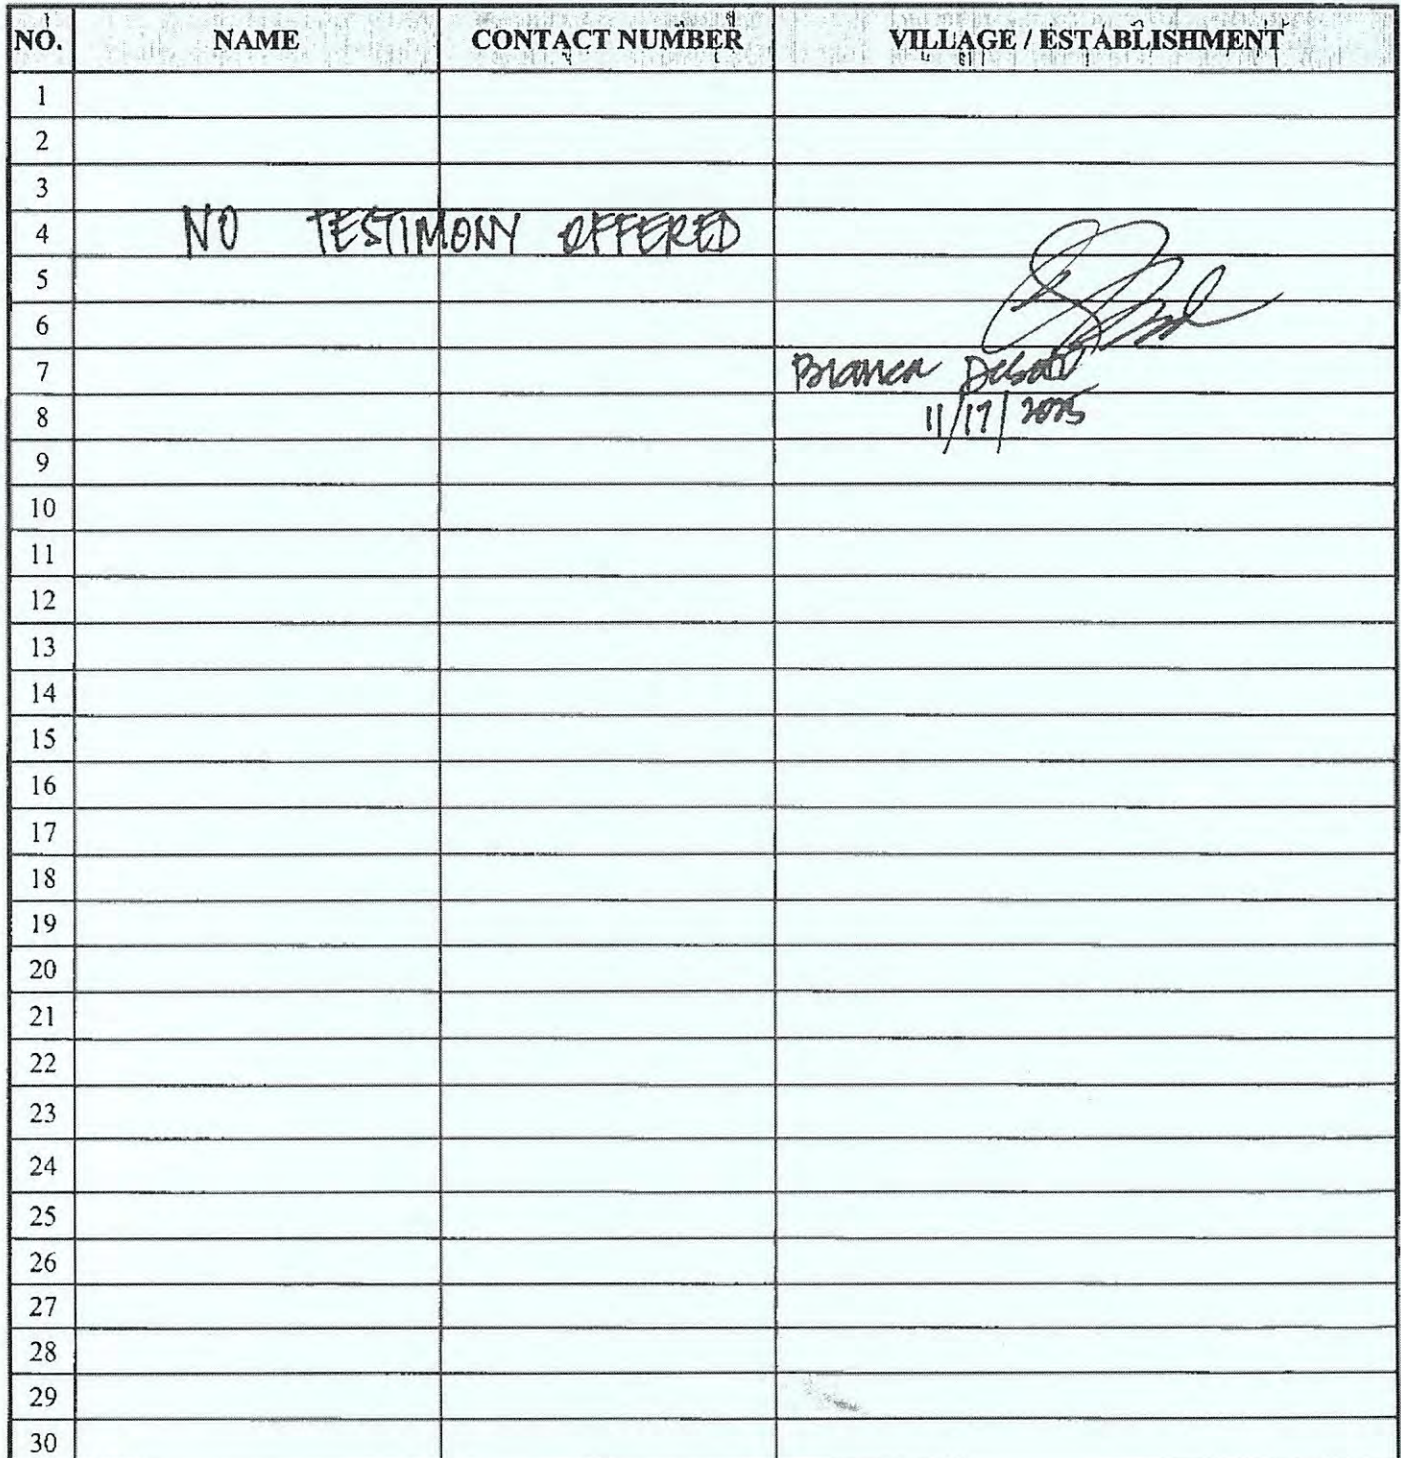 NO. NAME CONTACT NUMBER VILLAGE / ESTABLISHMENT
1
2
3
4 NO TESTIMONY OFFERED
5
6
7 Bianca
8 11/17/2025
9
10
11
12
13
14
15
16
17
18
19
20
21
22
23
24
25
26
27
28
29
30